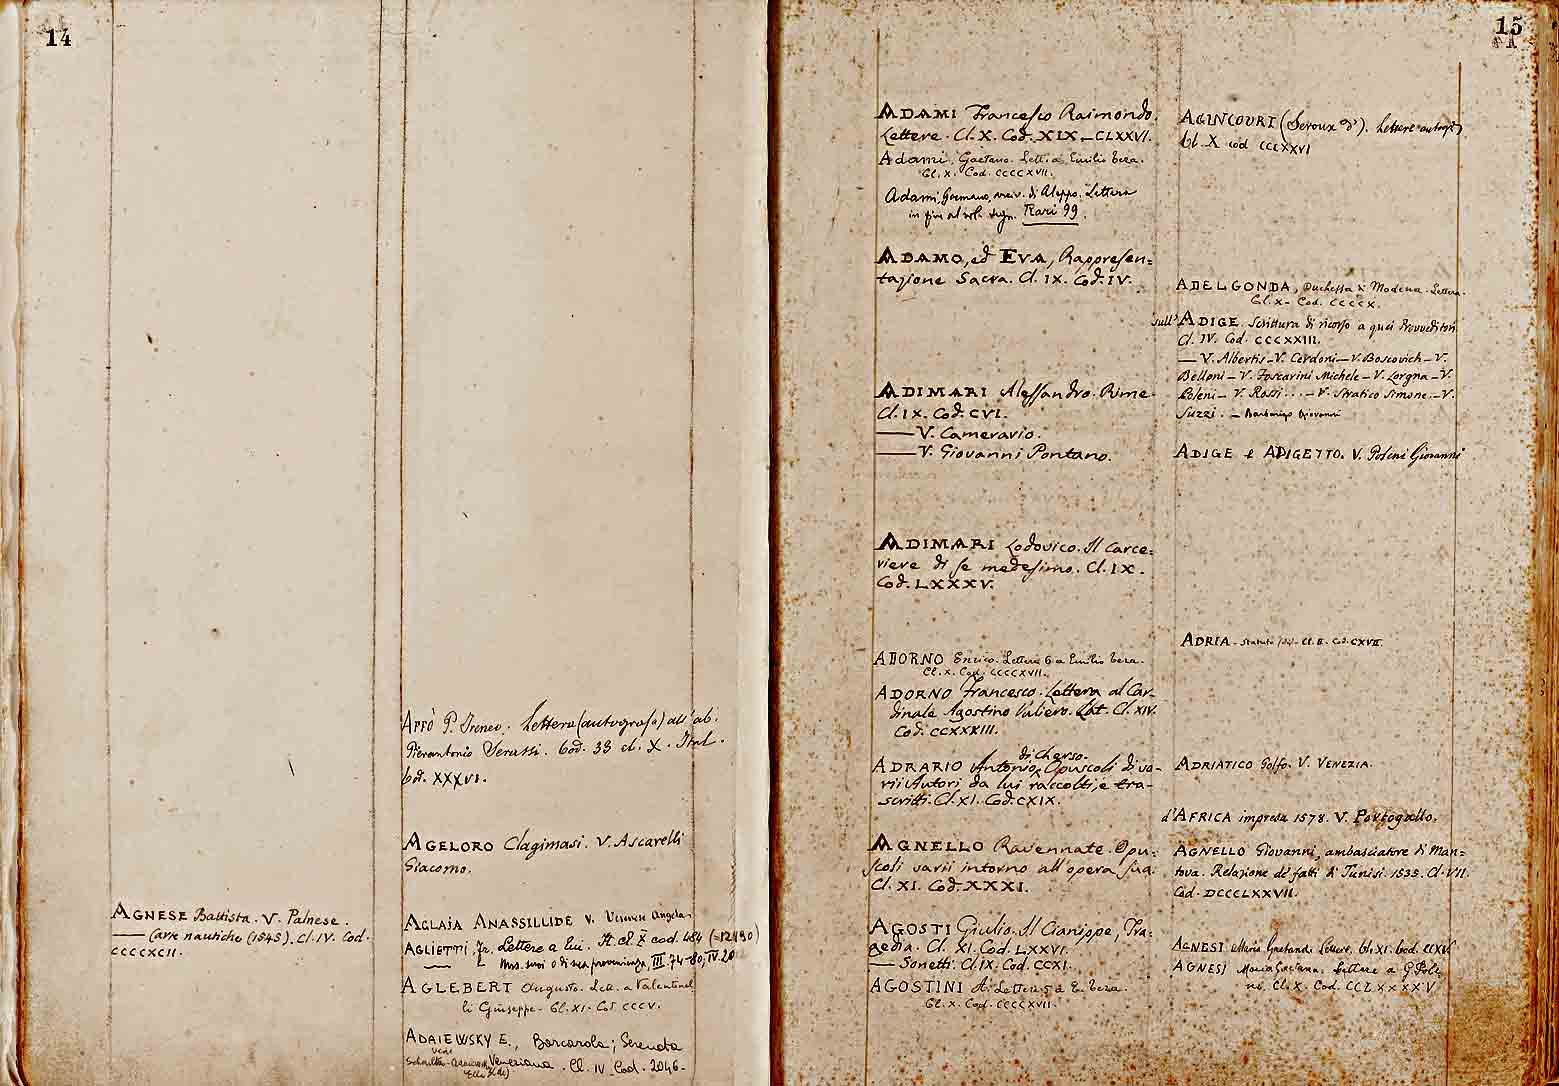 14
AGNESE Battista. V. Palnese.
— Carte nautiche (1545). Cl. IV. Cod.
CCCCXCII.
AFFÒ P. Ireneo. Lettera (autografa) all'ab.
Pierantonio Serassi. Cod. 33 cl. X. Ital.
Cod. XXXVI.
AGELORO Clagimasi. V. Ascarelli
Giacomo.
AGLAIA ANASSILLIDE V. Veronese Angela
AGLIETTI, Fr. Lettere a lui. It. cl. X cod. 484 (=12190)
— Mss. suoi o di sua provenienza, III. 74-80; IV. 20
AGLEBERT Augusto. Lett. a Valentinel
li Giuseppe. Cl. XI. Cod. CCCV.
ADAIEWSKY E., Barcarola; Serenata
Veneziana. Cl. IV. Cod. 2046.
15
ADAMI Francesco Raimondo.
Lettere. Cl. X. Cod. XIX – CLXXVI.
Adami. Gaetano. Lett. a Emilio Teza.
Cl. X. Cod. CCCCXVII.
Adami, Germano, arciv. di Aleppo. Lettera
in fine al vol. segn. Rari 99.
ADAMO, ed EVA, Rappresen=
tazione Sacra. Cl. IX. Cod. IV.
ADIMARI Alessandro. Rime.
Cl. IX. Cod. CVI.
— V. Camerario.
— V. Giovanni Pontano.
ADIMARI Lodovico. Il Carce=
riere di se medesimo. Cl. IX.
Cod. LXXXV.
ADORNO Enrico. Lettere 6 a Emilio Teza.
Cl. X. Cod. CCCCXVII.
ADORNO Francesco. Lettera al Car-
dinale Agostino Valiero. Lat. Cl. XIV.
Cod. CCXXXIII.
di Cherso.
ADRARIO Antonio, Opuscoli di va-
rii Autori da lui raccolti, e tra-
scritti. Cl. XI. Cod. CXIX.
AGNELLO Ravennate. Opu=
scoli varii intorno all'opera sua.
Cl. XI. Cod. XXXI.
AGOSTI Giulio. Il Cianippe, Tra=
gedia. Cl. XI. Cod. LXXVI.
— Sonetti. Cl. IX. Cod. CCXI.
AGOSTINI A. Lettere 5 a E. Teza.
Cl. X. Cod. CCCCXVII.
AGINCOURT (Seroux d'). Lettere autogr.
Cl. X cod CCCXXVI
ADELGONDA, Duchessa di Modena. Lettera.
Cl. X – Cod. CCCCX.
sull'ADIGE. Scrittura di ricorso a quei Provveditori
Cl. IV. Cod. CCCXXIII.
— V. Albertis – V. Cerdoni – V. Boscovich – V.
Belloni – V. Foscarini Michele – V. Lorgna – V.
Poleni – V. Rossi... – V. Stratico Simone. – V.
Suzzi. – Barbarigo Giovanni
ADIGE e ADIGETTO. V. Poleni Giovanni
ADRIA. Cod. CXVII.
ADRIATICO Golfo. V. VENEZIA.
d'AFRICA impresa 1578. V. Portogallo.
AGNELLO Giovanni, ambasciatore di Man=
tova. Relazione de' fatti di Tunisi. 1535. Cl. VII.
Cod. DCCCLXXVII.
AGNESI Maria Gaetana. Lettere. Cl. XI. Cod. CCXV
AGNESI Maria Gaetana. Lettere a G. Pole
ni. Cl. X. Cod. CCLXXXXV